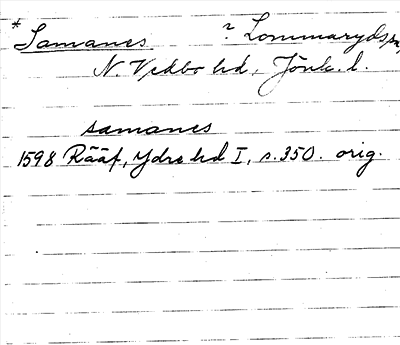 *Samanes ? Lommaryds sn,
N. Vedbo hd, Jönk. l.
samanes
1598 Rääf, Ydre hd I, s. 350. orig.